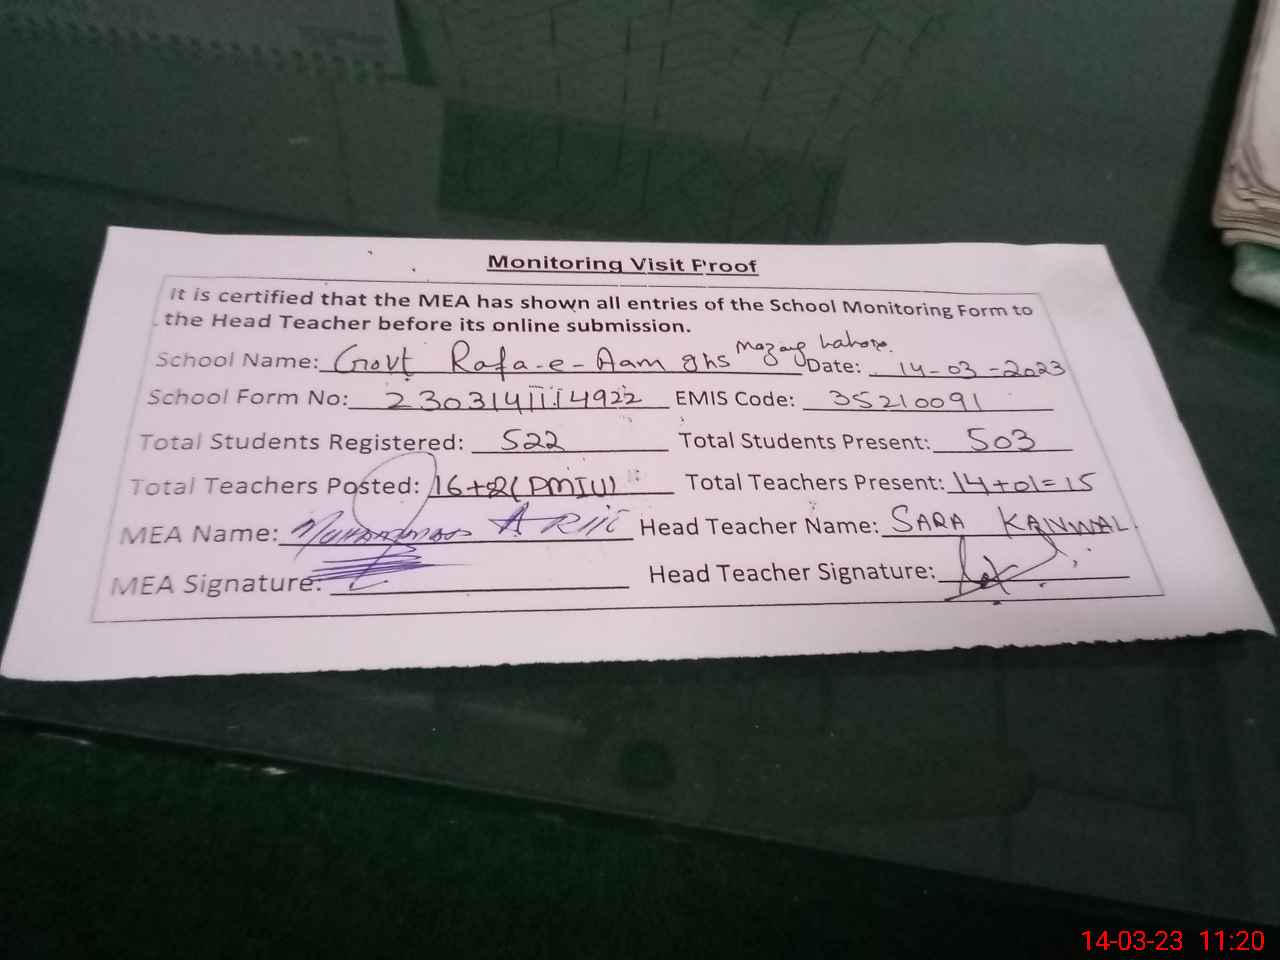 Monitoring Visit Proof
It is certified that the MEA has shown all entries of the School Monitoring Form to
the Head Teacher before its online submission.
School Name: Govt Rafa-e-Aam ghs Mozang Lahore. Date: 14-03-2023
School Form No: 2303141114922 EMIS Code: 35210091
Total Students Registered: 522 Total Students Present: 503
Total Teachers Posted: 16+2(PMIU) Total Teachers Present: 14+01=15
MEA Name: Muhammad Head Teacher Name: SARA KANWAL.
MEA Signature: Head Teacher Signature:
14-03-23 11:20